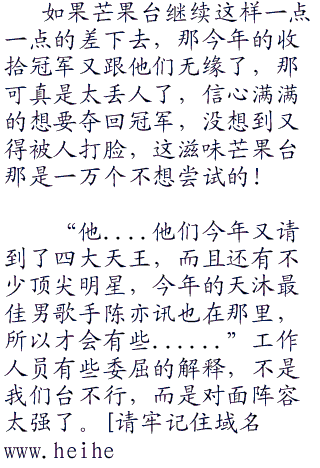 如果芒果台继续这样一点
一点的差下去，那今年的收
拾冠军又跟他们无缘了，那
可真是太丢人了，信心满满
的想要夺回冠军，没想到又
得被人打脸，这滋味芒果台
那是一万个不想尝试的！
“他....他们今年又请
到了四大天王，而且还有不
少顶尖明星，今年的天沐最
佳男歌手陈亦讯也在那里，
所以才会有些......”工作
人员有些委屈的解释，不是
我们台不行，而是对面阵容
太强了。[请牢记住域名
www.heihe